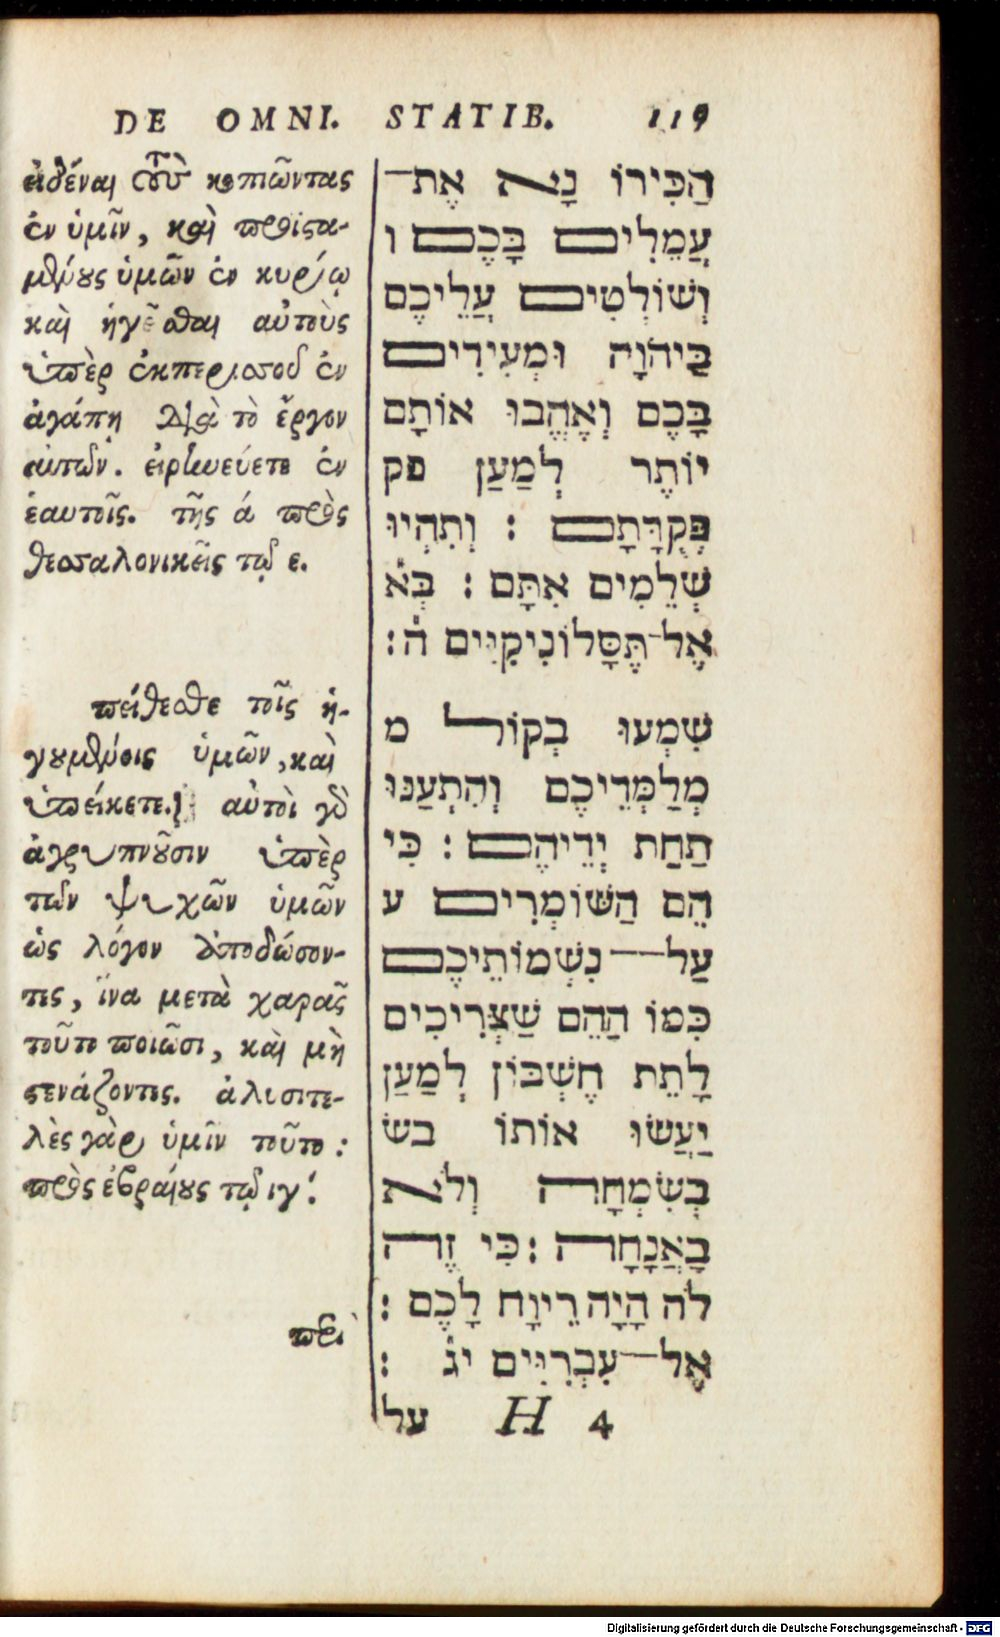 DE OMNI. STATIB. 119
εἰδέναι τοὺς κοπιῶντας
ἐν ὑμῖν, καὶ προϊστα-
μένους ὑμῶν ἐν κυρίῳ
καὶ ἡγεῖσθαι αὐτοὺς
ὑπὲρ ἐκπερισσοῦ ἐν
ἀγάπῃ διὰ τὸ ἔργον
αὐτῶν. εἰρηνεύετε ἐν
ἑαυτοῖς. τῆς ά πρὸς
θεσσαλονικεῖς τῷ ε.
πείθεσθε τοῖς ἡ-
γουμένοις ὑμῶν, καὶ
ὑπείκετε. αὐτοὶ γὰρ
ἀγρυπνοῦσιν ὑπὲρ
τῶν ψυχῶν ὑμῶν
ὡς λόγον ἀποδώσον-
τες, ἵνα μετὰ χαρᾶς
τοῦτο ποιῶσι, καὶ μὴ
στενάζοντες. ἀλυσιτε-
λὲς γὰρ ὑμῖν τοῦτο:
πρὸς ἑβραίους τῷ ιγ΄.
περὶ
הַכִּירוֹ נָא אֶת־
עֲמֵלִים בָּכֶם ו
וְשׁוֹלְטִים עֲלֵיכֶם
בַּיהֹוָה וּמְעִירִים
בָּכֶם וְאֶהֱבוּ אוֹתָם
יוֹתֶר לְמַעַן פק
פְּקֻדָּתָם : וְתִהְיוּ
שְׁלֵמִים אִתָּם : בְּא֗
אֶל־תֶּסָּלוֹנִיקִיִּים ה֗:
שִׁמְעוּ בְּקוֹל מ
מְלַמְּדֵיכֶם וְהִתְעַנּוּ
תַחַת יְדֵיהֶם : כִּי
הֵם הַשּׁוֹמְרִים ע
עַל־ נִשְׁמוֹתֵיכֶם
כְּמוֹ הַהֵם שַׁצְּרִיכִים
לָתֵת חֶשְׁבּוֹן לְמַעַן
יַעֲשׂוּ אוֹתוֹ בש
בְּשִׂמְחָה וְלֹא
בָאֲנָחָה : כִּי זֶה
לֹה הָיָה רֵיוָח לָכֶם :
אֶל־עִבְרִיִּים יג֗ :
על
H 4
Digitalisierung gefördert durch die Deutsche Forschungsgemeinschaft - DFG